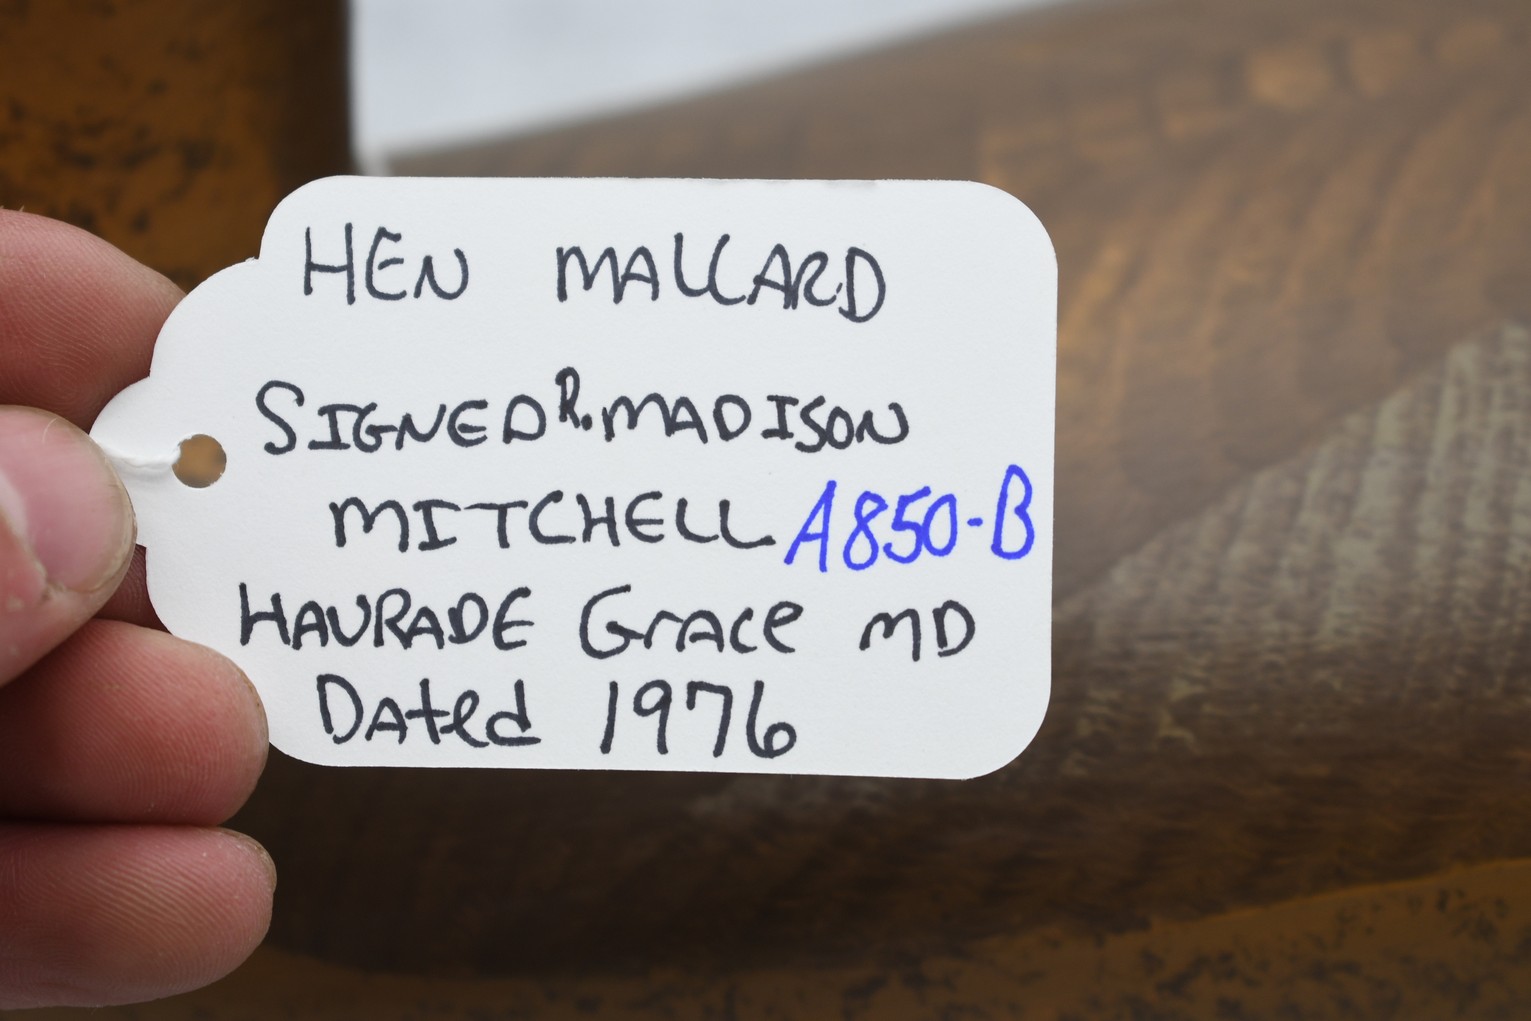 HEN MALLARD
SIGNED R. MADISON
MITCHELL A850-B
HAVRADE Grace MD
Dated 1976